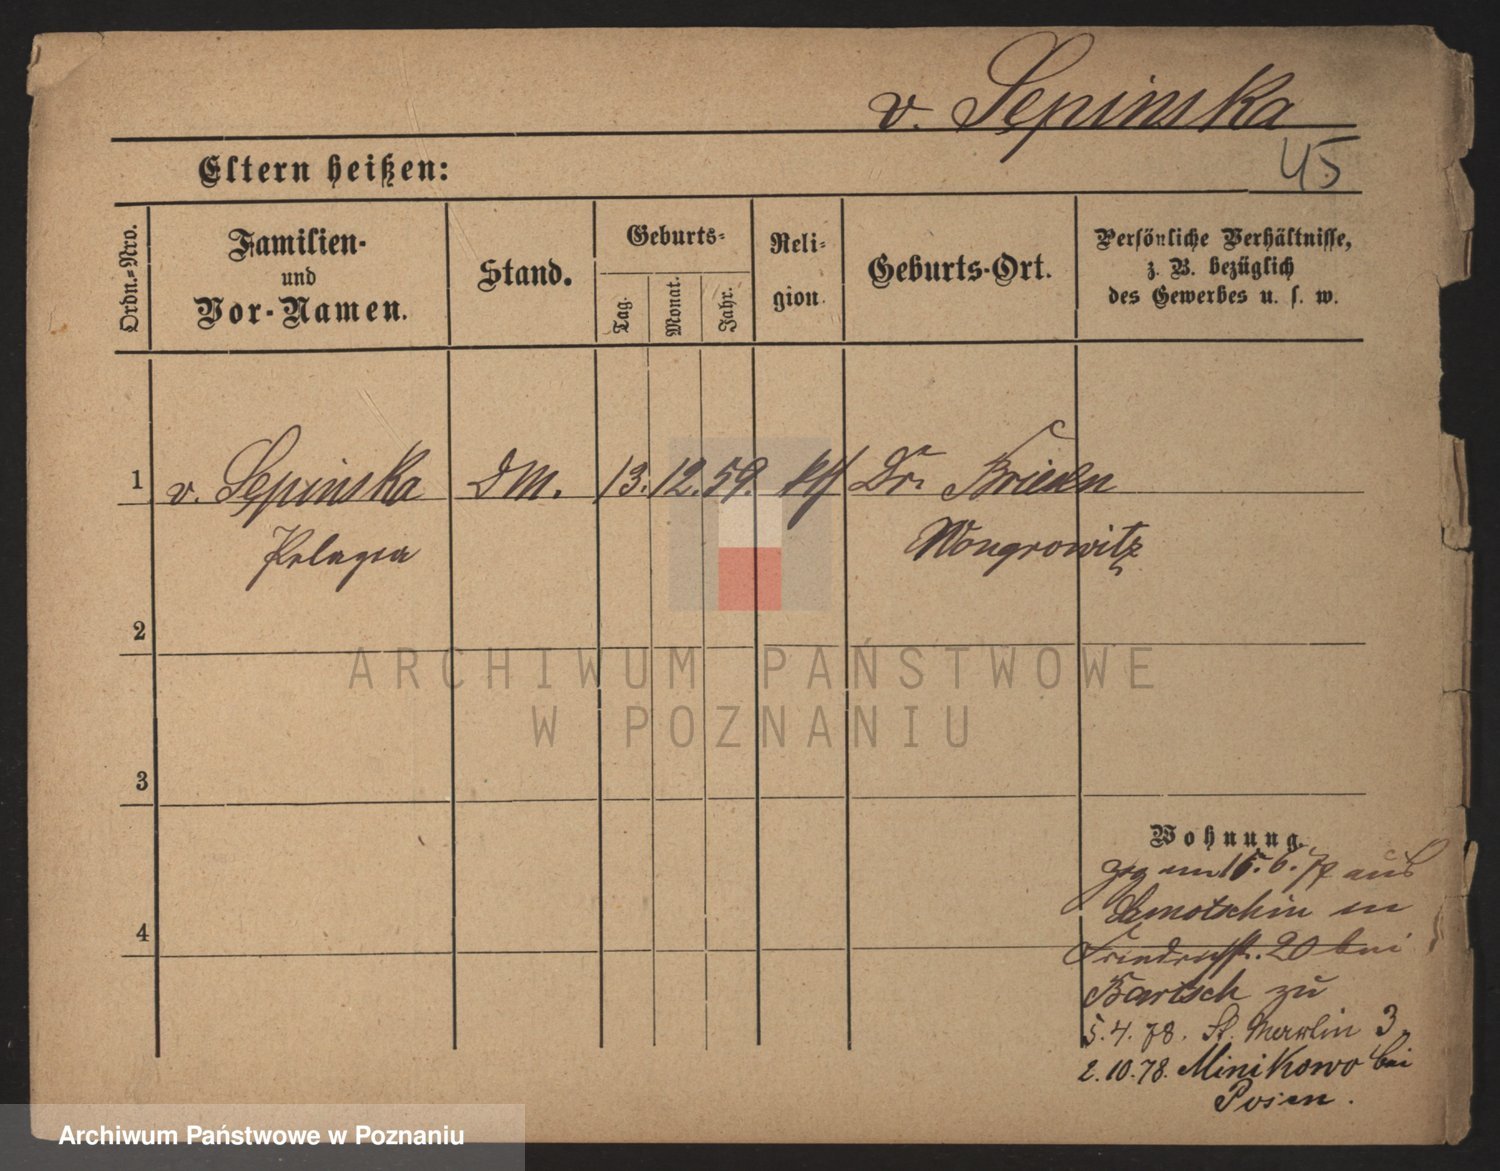 v. Sepinska
45
Eltern heißen:
Ordn.-Nro.
Familien- und Vor-Namen.
Stand.
Geburts-
Tag.
Monat.
Jahr.
Reli-
gion.
Geburts-Ort.
Persönliche Verhältnisse,
z. B. bezüglich
des Gewerbes u. s. w.
1 v. Sepinska DM. 13. 12. 59. kth Dr. Briesen
Pelagia Wongrowitz
2
ARCHIWUM PAŃSTWOWE
W POZNANIU
3
Wohnung.
gzg am 15. 6. 77 aus
Samotschin in
4
Friedrichstr. 20 bei
Bartsch zu
5. 4. 78. St. Martin 3.
2. 10. 78. Minikowo bei
Posen.
Archiwum Państwowe w Poznaniu